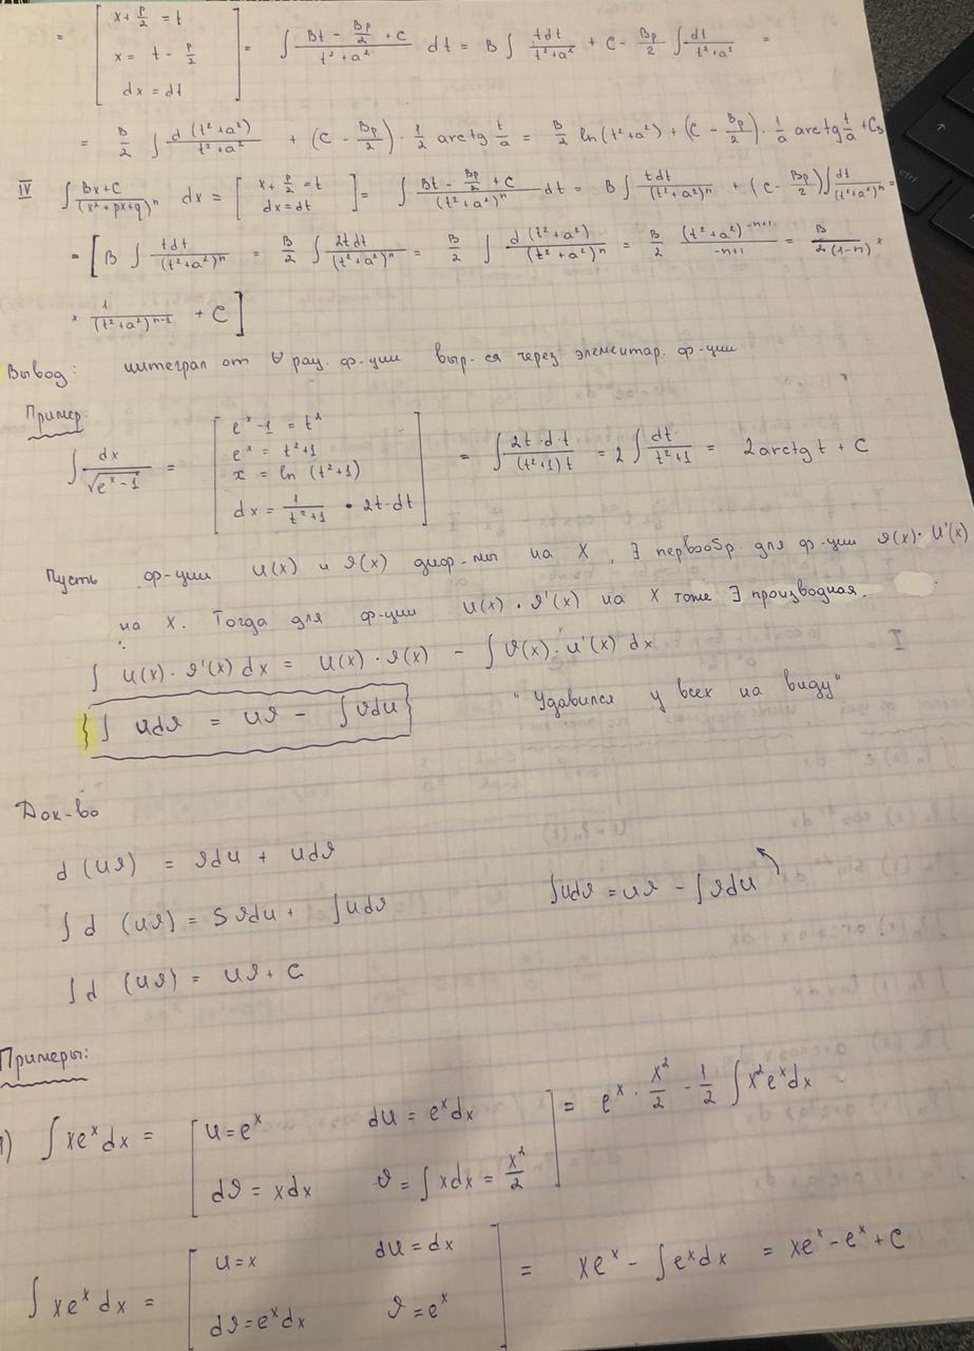 = [ x + p/2 = t
x = t - p/2
dx = dt ] = ∫ (Bt - Bp/2 + C)/(t² + a²) dt = B ∫ tdt/(t² + a²) + C - Bp/2 ∫ dt/(t² + a²) =
= B/2 ∫ d(t² + a²)/(t² + a²) + (C - Bp/2) · 1/2 arctg t/a = B/2 ln(t² + a²) + (C - Bp/2) · 1/a arctg t/a + C
IV ∫ (Bx + C)/(x² + px + q)ⁿ dx = [ x + p/2 = t
dx = dt ] = ∫ (Bt - Bp/2 + C)/(t² + a²)ⁿ dt = B ∫ tdt/(t² + a²)ⁿ + (C - Bp/2) ∫ dt/(t² + a²)ⁿ =
= [ B ∫ tdt/(t² + a²)ⁿ = B/2 ∫ 2tdt/(t² + a²)ⁿ = B/2 ∫ d(t² + a²)/(t² + a²)ⁿ = B/2 (t² + a²)⁻ⁿ⁺¹/(-n+1) = B/2(1-n) ×
× 1/(t² + a²)ⁿ⁻¹ + C ]
Вывод: интеграл от ∀ рац. ф-ции выр-ся через элементар. ф-ции
Пример:
∫ dx/√(eˣ - 1) = [ eˣ - 1 = t²
eˣ = t² + 1
x = ln (t² + 1)
dx = 1/(t² + 1) · 2t · dt ] = ∫ 2t · d · t/((t² + 1) t) = 2 ∫ dt/(t² + 1) = 2 arctg t + C
Пусть ф-ции u(x) и ϑ(x) диф-мы на X, ∃ первообр. для ф-ции ϑ(x) · u'(x)
на X. Тогда для ф-ции u(x) · ϑ'(x) на X тоже ∃ производная.
∫ u(x) · ϑ'(x) dx = u(x) · ϑ(x) - ∫ ϑ(x) · u'(x) dx
{ ∫ udϑ = uϑ - ∫ ϑdu } "Удавился у всех на виду"
Док-во
d (uϑ) = ϑdu + udϑ
∫ d (uϑ) = S ϑdu + ∫ udϑ ∫ udϑ = uϑ - ∫ ϑdu
∫ d (uϑ) = uϑ + C
Примеры:
) ∫ xeˣ dx = [ u = eˣ du = eˣdx
dϑ = xdx ϑ = ∫ xdx = x²/2 ] = eˣ · x²/2 - 1/2 ∫ x²eˣdx
∫ xeˣ dx = [ u = x du = dx
dϑ = eˣdx ϑ = eˣ ] = xeˣ - ∫ eˣdx = xeˣ - eˣ + C